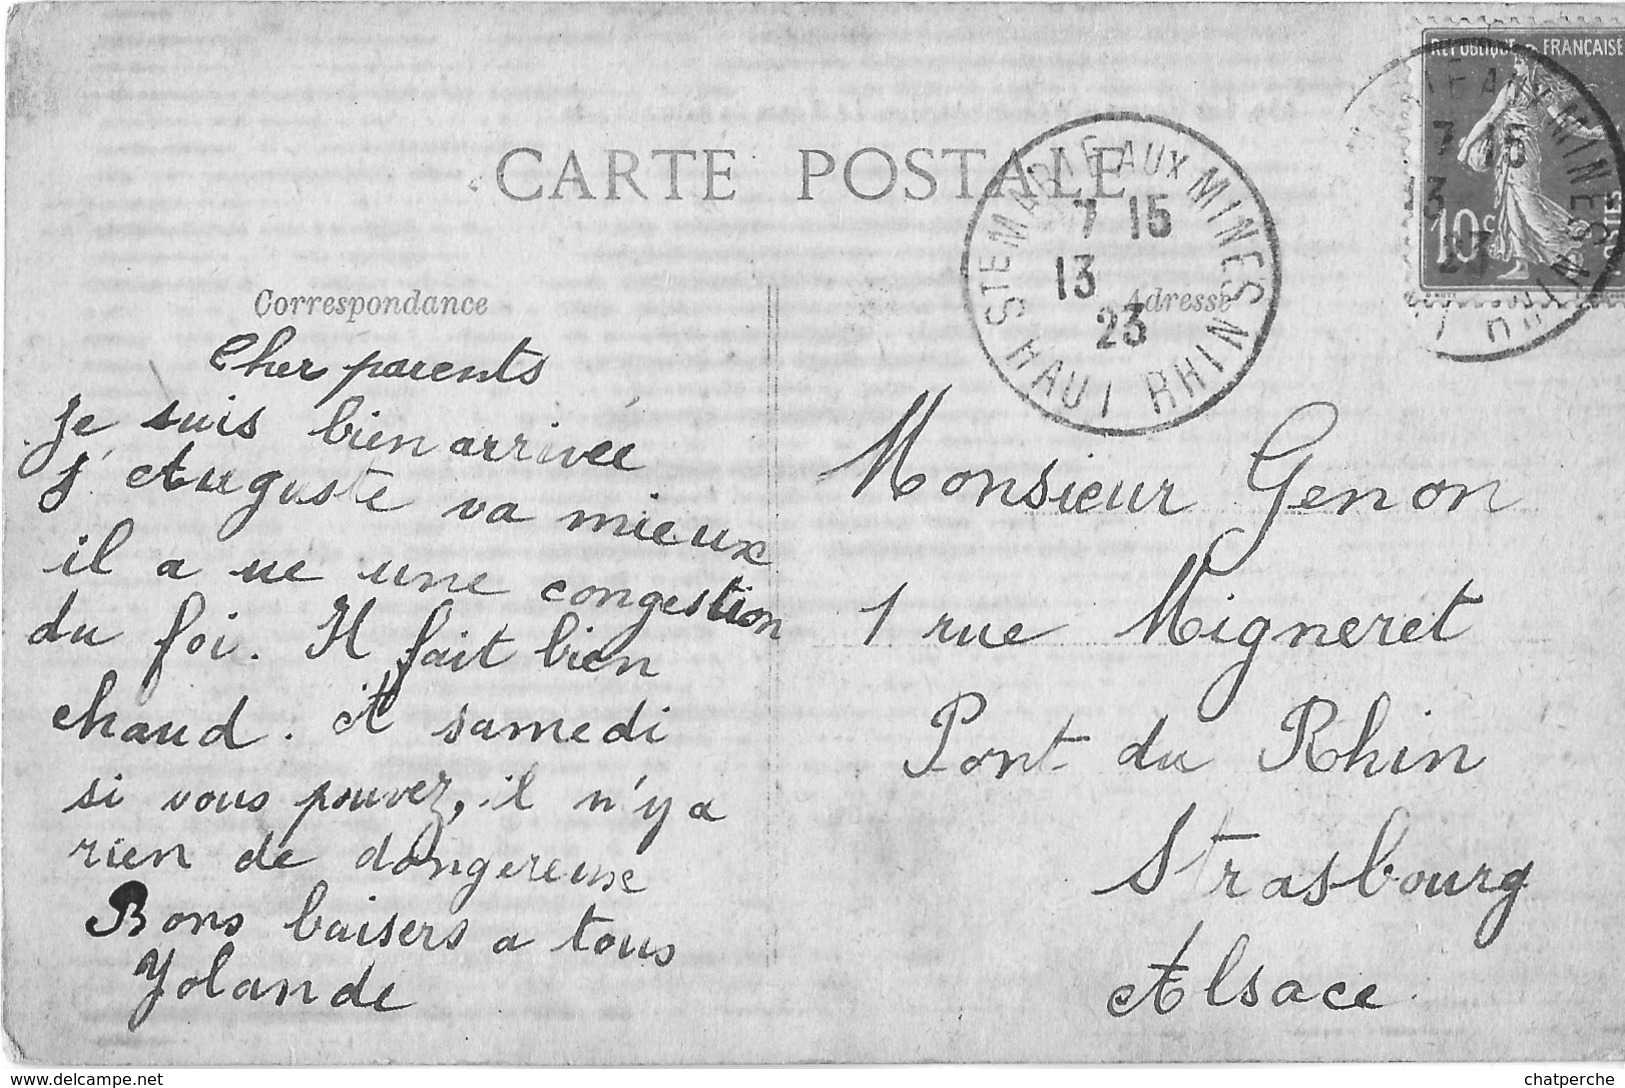 REPUBLIQUE FRANÇAISE
10c
POSTES
CARTE POSTALE
STE MARIE AUX MINES
7 15
13
23
HAUT RHIN
Correspondance
Adresse
Cher parents
Je suis bien arrivée
J' Auguste va mieux
il a ue une congestion
du foi. Il fait bien
chaud. A samedi
si vous pouvez, il n'y a
rien de dangereux
Bons baisers a tous
Yolande
Monsieur Genon
1 rue Migneret
Pont du Rhin
Strasbourg
Alsace
www.delcampe.net
chatperche